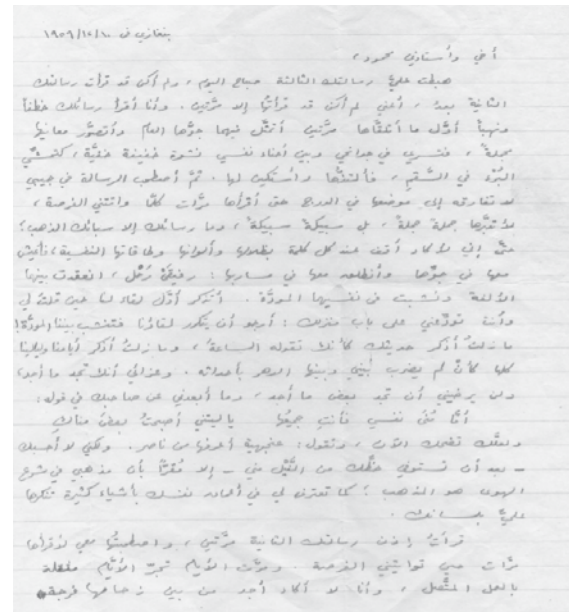 بنغازي في ١٩٥٩/١٢/١٠
أخي وأستاذي محمود،
هبطت عليّ رسالتك الثالثة صباح اليوم، ولم أكن قد قرأت رسالتك
الثانية بعدُ، أعني لم أكن قد قرأتُها إلا مرّتين. وأنا أقرأ رسائلك خطفاً
ونهباً أوّل ما أتلقّاها مرّتين أتمثّل فيها جوّها العام وأتصوّر معانيها
مجملة، فتسري في جوانحي وبين أحناء نفسي نشوة خفيفة خفيّة، كتمشّي
البُرْء في السَّقم، فألتذّها وأستكين لها. ثمّ أصطحب الرسالة في جيبي
لا تفارقه إلى موضعها في الدرج حتى أقرأها مرّات كلّما واتتني الفرصة،
لأتدبّرها جملة جملة، بل سبيكة سبيكة، وما رسائلك إلا سبائك الذهب؛
حتّى إني لأكاد أقف عند كل كلمة بظلالها وألوانها وطاقاتها النفسية، فأعيش
معها في جوّها وأنطلق معها في مساربها: رفيقَيْ رَحْل، انعقدت بينهما
الألفة ونشبت في نفسيهما المودّة. أتذكر أوّل لقاء لنا حين قلتَ لي
وأنت تودّعني على باب منزلك: أرجو أن يتكرر لقاؤنا فتنشب بيننا المودّة!
ما زلتُ أذكر حديثك كأنك تقوله الساعةَ، وما زلتُ أذكر أيامنا وليالينا
كلها كأنْ لم يضرب بيني وبينها الدهر بأحداثه. وعزائي أنك تجد ما أجد،
ولن يرضيني أن تجد بعض ما أجد، وما أبعدني عن صاحبك في قوله:
أمّا مُنَى نفسي فأنتِ جميعُها يا ليتني أصبحتُ بعضَ مناكِ
ولعلّك تضحك الآن، وتقول: عنجهية أعرفها من ناصر. ولكني لا أحسبك
– بعد أن تستوفي حظّك من النَّيْل مني – إلا مُقرّاً بأن مذهبي في شرع
الهوى هو المذهب؛ كما تعترف لي في نفسك بأشياء كثيرة تنكرها
عليّ بلسانك.
قرأتُ إذن رسالتك الثانية مرّتين، واصطحبتُها معي لأقرأها
مرّات حين تواتيني الفرصة. ومرّت الأيام تجرّ الأيّام مثقلة
بالعمل المتّصل، وأنا لا أكاد أجد من بين زحامها فرجة